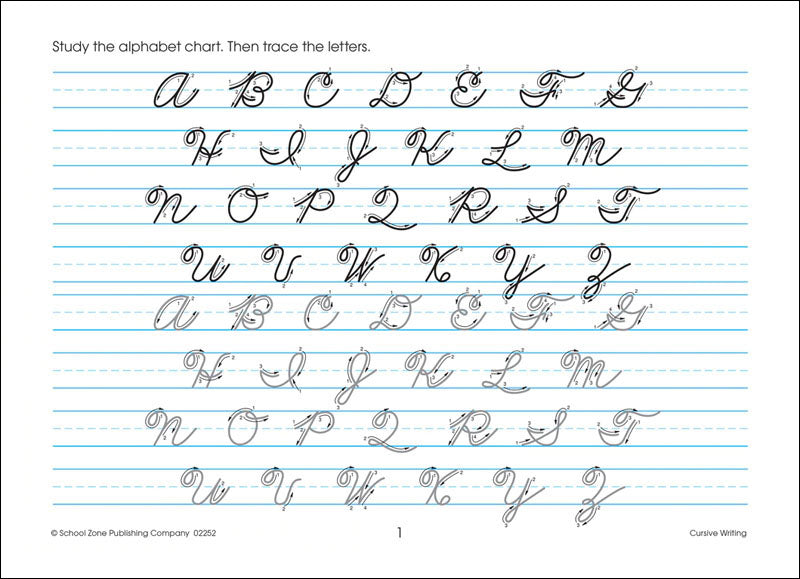 Study the alphabet chart. Then trace the letters.
A B C D E F G
H I J K L M
N O P Q R S T
U V W X Y Z
A B C D E F G
H I J K L M
N O P Q R S T
U V W X Y Z
© School Zone Publishing Company 02252 1 Cursive Writing